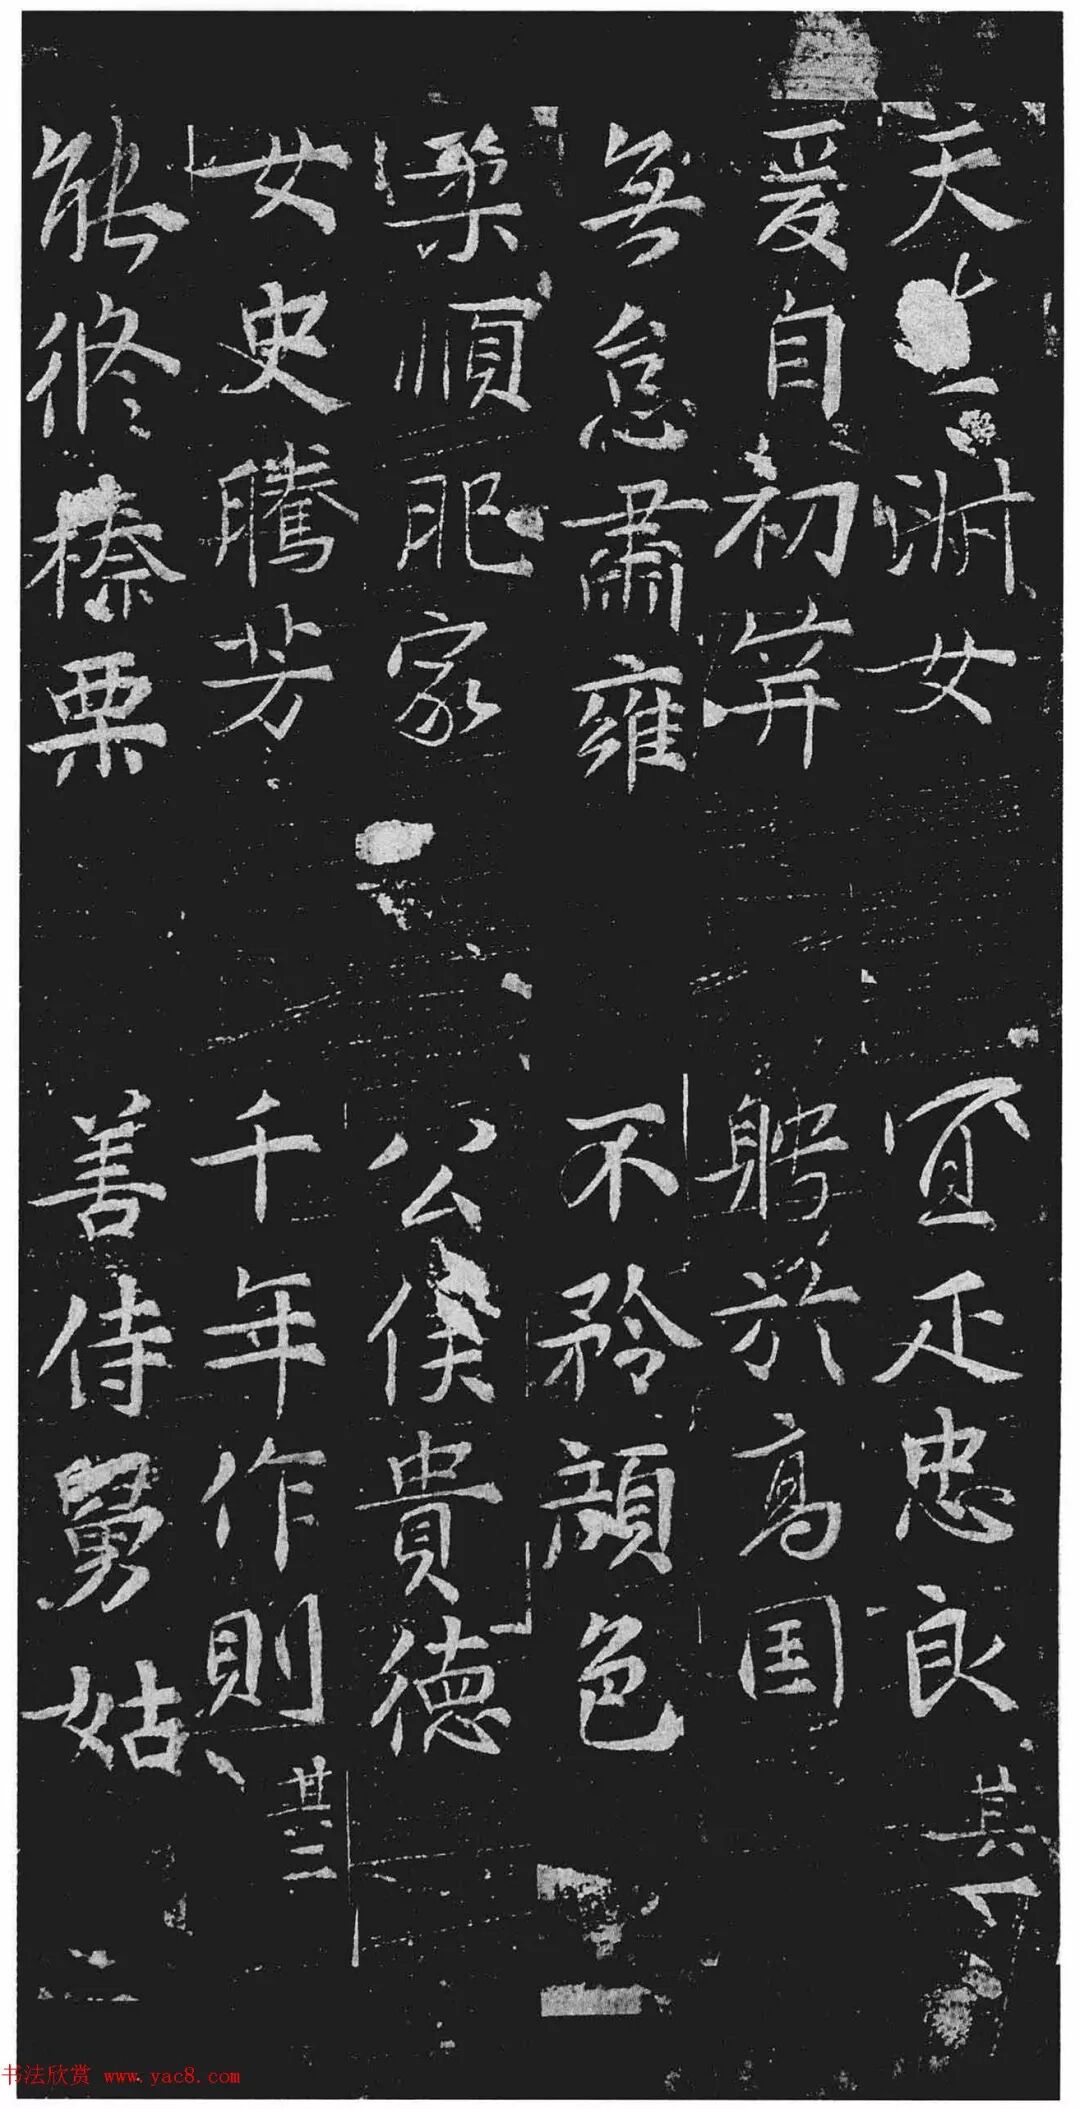 天 淑女 宜迋忠良 其一
爰自初笄 聘於高国
無怠肅雍 不矜顔色
柔順肥家 公侯貴德
女史騰芳 千年作則 其二
能修榛栗 善侍舅姑
书法欣赏 www.yac8.com